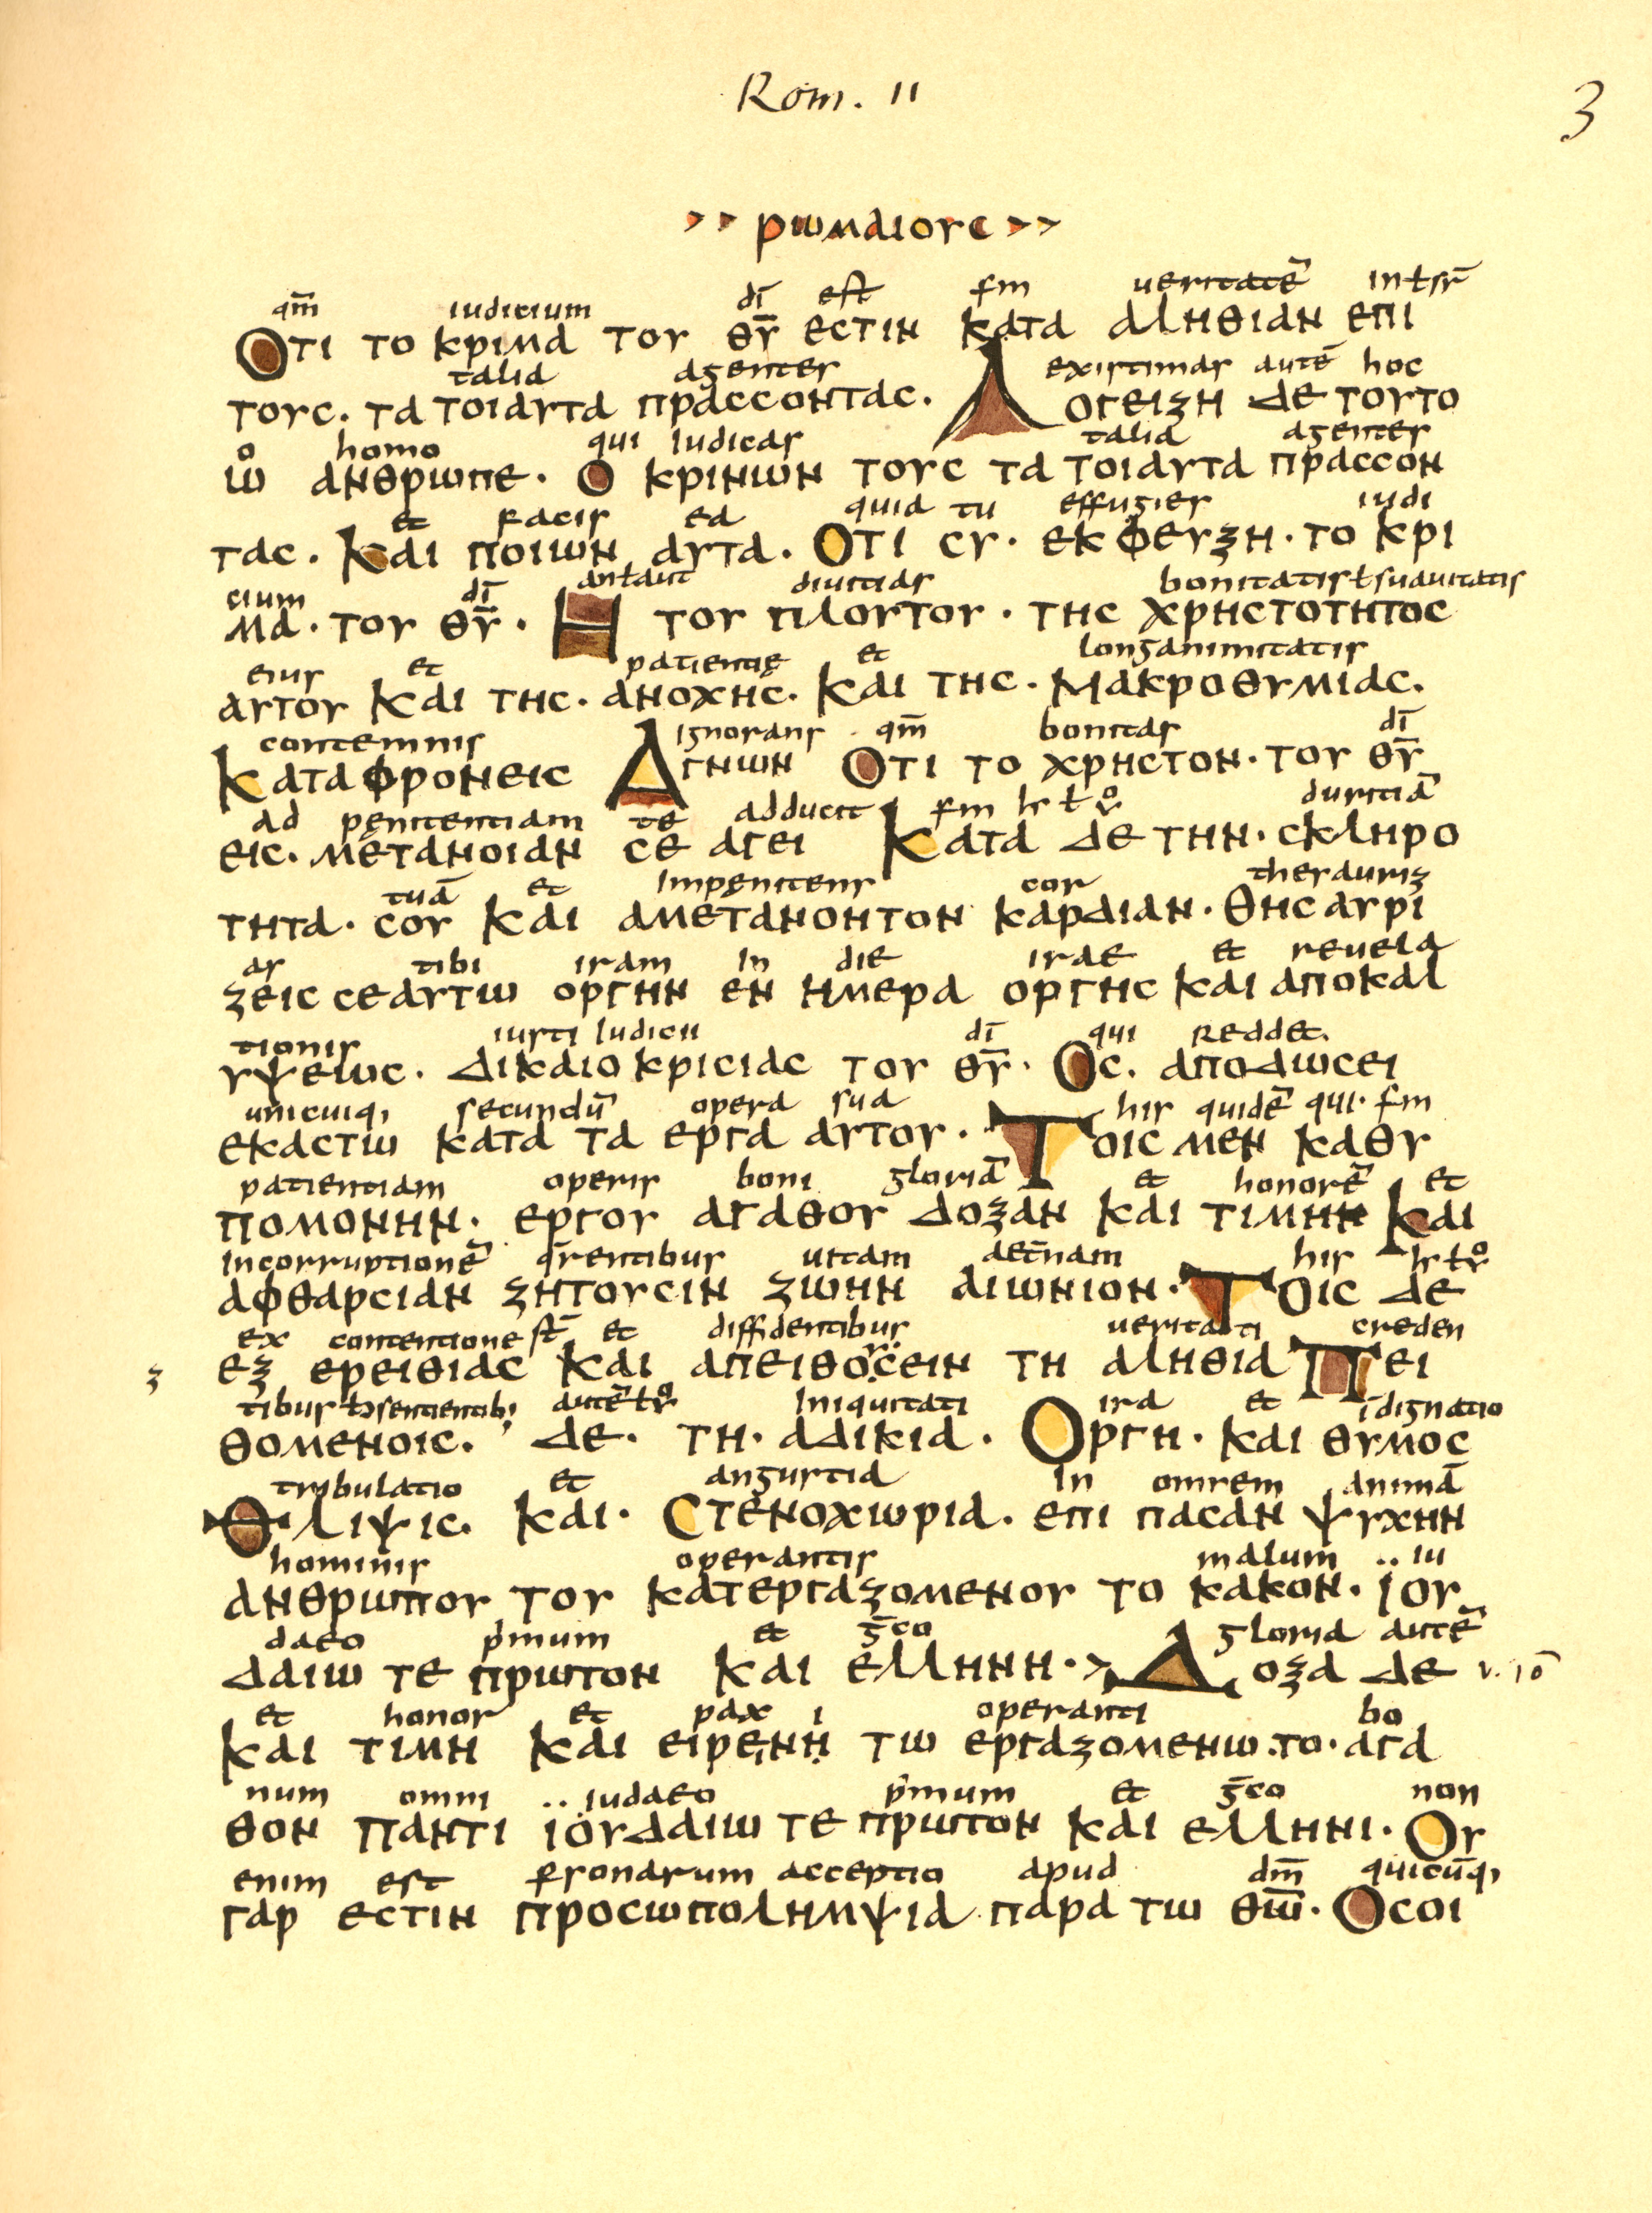 Rom. II
3
>> ρωμαιους >>
qm̄ iudicium dī est scdm ueritatē in ł sr̄
Οτι το κριμα του θ̄ῡ εστιν κατα αληθιαν επι
talia agentes existimas autē hoc
τους. τα τοιαυτα πρασσοντας. Λογειζη δε τουτο
o homo qui iudicas talia agentes
ω ανθρωπε. Ο κρινων τους τα τοιαυτα πρασσον
et facis ea quia tu effugies iudi
τας. Και ποιων αυτα. Οτι συ. εκφευξη. το κρι
cium dī an ł aut diuitias bonitatis ł suauitatis
μα. του θ̄ῡ. Η του πλουτου. της χρηστοτητος
eius et patientię et longanimitatis
αυτου Και της. ανοχης. Και της. Μακροθυμιας.
contemnis ignorans qm̄ bonitas dī
Καταφρονεις Αγνων Οτι το χρηστον. του θ̄ῡ
ad penitentiam te adducit scdm ł duritiā
εις. μετανοιαν σε αγει Κατα δε την. σκληρο
tuā et impęnitens cor thesauriz
τητα. σου Και αμετανοητον καρδιαν. θησαυρι
as tibi iram in die irae et reuela
ζεις σεαυτω οργην εν ημερα οργης και αποκαλ
tionis iusti iudicii dī qui reddet.
υψεως. δικαιοκρισιας του θ̄ῡ. Ος. αποδωσει
unicuiq; secundū opera sua his quidē qui. scdm
εκαστω κατα τα εργα αυτου. Τοις μεν καθυ
patientiam operis boni gloriā et honorē et
πομονην. εργου αγαθου δοξαν και τιμην Και
incorruptionē q̄rentibus uitam aet̄nam his ł
αφθαρσιαν ζητουσιν ζωην αιωνιον. Τοις δε
ex contentione st̄ et diffidentibus ueritati creden
ζ εξ ερειθιας Και απειθοσειν τη αληθια Πει
tibus ł sentientib; autē ł iniquitati ira et īdignatio
θομενοις. δε. τη. αδικια. Οργη. και θυμος
tribulatio et angustia in omnem animā
Θλιψις. Και. Στενοχωρια. επι πασαν ψυχην
hominis operantis malum .. iu
ανθρωπου του κατεργαζομενου το κακον. ιου
daeo p̄mum et ḡco gloria autē
δαιω τε πρωτον Και ελληνη. > Δοξα δε v. 10
et honor et pax ι operanti bo
και τιμη Και ειρενη τω εργαζομενω. το. αγα
num omni .. iudaeo p̄mum et ḡco non
θον παντι ιουδαιω τε πρωτον και ελληνι. Ου
enim est psonarum acceptio apud dm̄ quicūq;
γαρ εστιν προσωπολημψια παρα τω θ̄ω̄. Οσοι